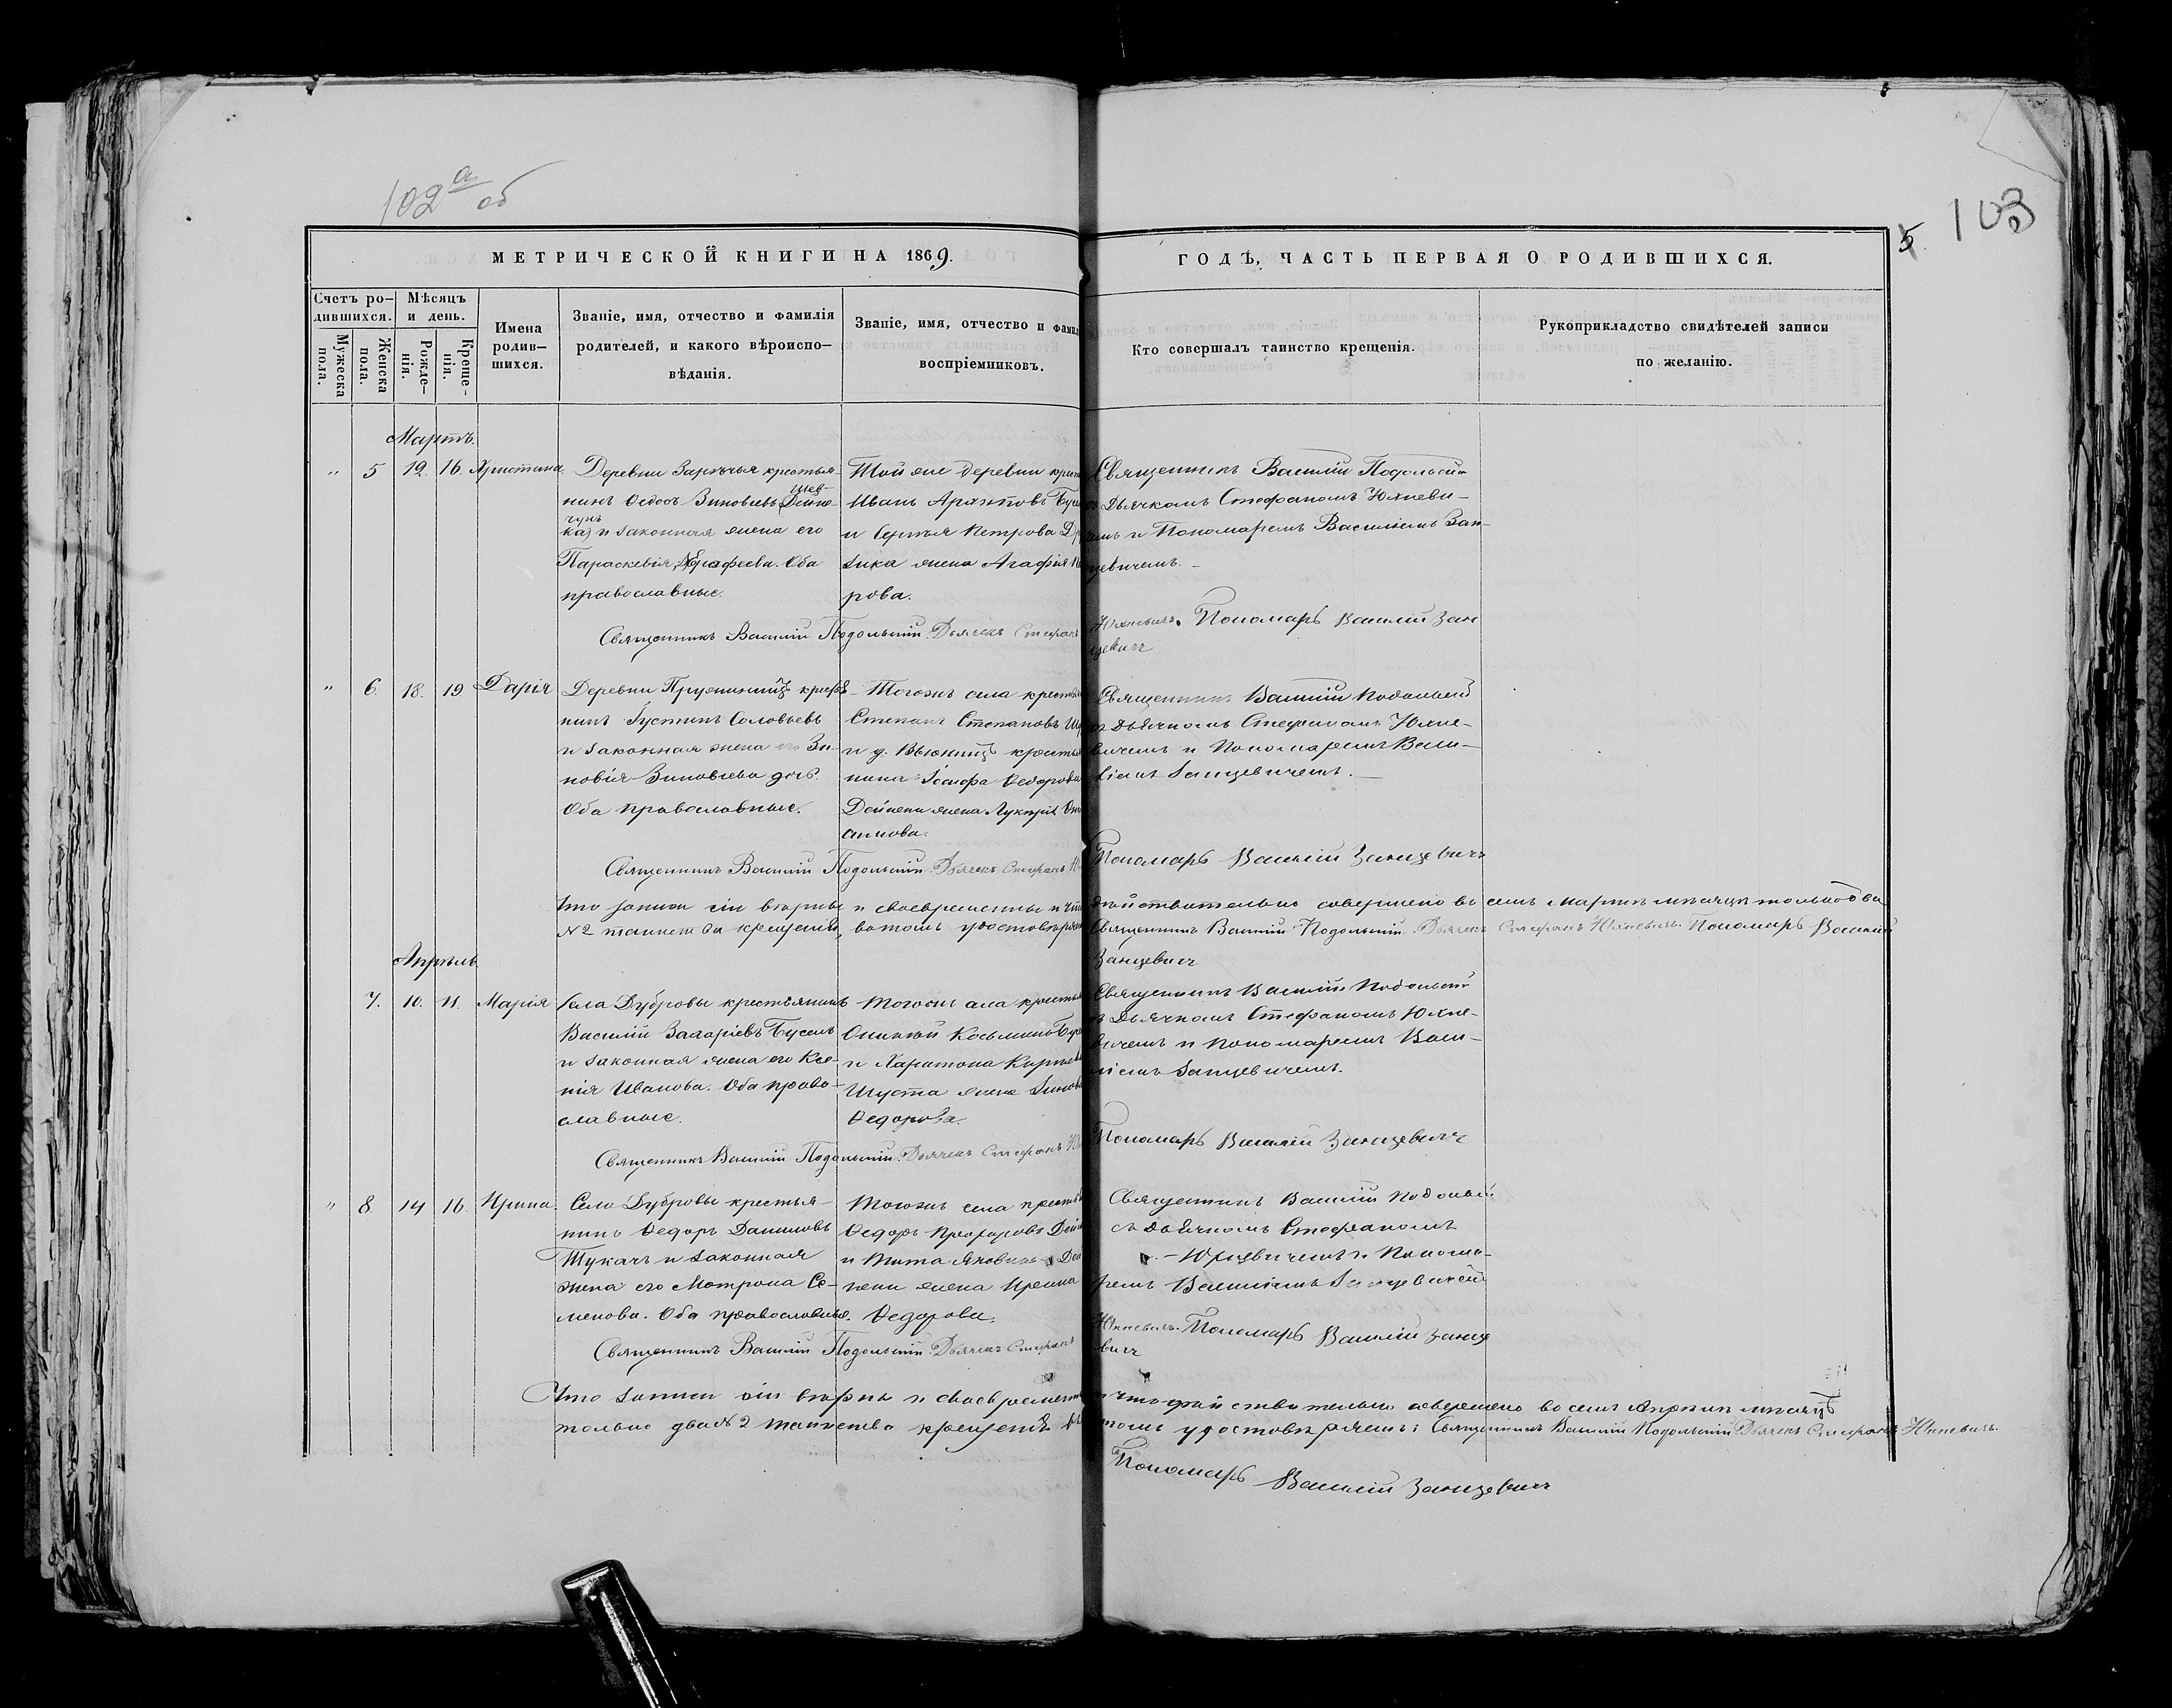 102 а об
103
5.
МЕТРИЧЕСКОЙ КНИГИ НА 1869.
ГОДЪ, ЧАСТЬ ПЕРВАЯ О РОДИВШИХСЯ.
Счетъ ро-
дившихся.
Мужеска
пола.
Женска
пола.
Мѣсяцъ
и день.
Рожде-
нія.
Креще-
нія.
Имена
родив-
шихся.
Званіе, имя, отчество и фамилія
родителей, и какого вѣроиспо-
вѣданія.
Званіе, имя, отчество и фамил
воспріемниковъ.
Кто совершалъ таинство крещенія.
Рукоприкладство свидѣтелей записи
по желанію.
Мартъ.
" 5 12. 16. Христина.
Деревни Зарѣчья крестья-
нинъ Ѳедоръ Зиновьевъ
и законная жена его
Параскевія Оба
православные.
Той же деревни крест
Иванъ
и Сергѣя Петрова
жена Агафія
рова.
Священникъ Василій Подольскій
съ Дьячкомъ Стефаномъ Юхневи-
чемъ и Пономаремъ Василіемъ Зан-
цевичемъ.
Священникъ Василій Подольскій. Дьячекъ Стефанъ Юхневичъ. Пономарь Василій Зан
цевичъ
" 6. 18. 19 Дарія
Деревни крестья
нинъ Іустинъ Соловьевъ
и законная жена его Зи-
новія Зиновьева дочь.
Оба православные.
Тогожъ села крестья
Степанъ Степановъ
и д. крестья
нина Іосифа Ѳедорова
Дейнеки жена
Священникъ Василій Подольскій
съ Дьячкомъ Стефаномъ Юхне-
вичемъ и Пономаремъ Васи-
ліемъ Занцевичемъ.
Священникъ Василій Подольскій. Дьячекъ Стефанъ Ю
Пономарь Василій Занцевичъ
Что записи сіи вѣрны и своевременны и что дѣйствительно совершено въ семъ Мартѣ мѣсяцѣ только два
№ 2 таинства крещенія, въ томъ удостовѣряемъ Священникъ Василій Подольскій. Дьячекъ Стефанъ Юхневичъ. Пономарь Василій
Занцевичъ
Апрѣль.
7. 10. 11. Марія
Села Дубровы крестьянинъ
Василій Захаріевъ Буселъ
и законная жена его Ксе-
нія Иванова. Оба право-
славные.
Тогожъ села крестья
Козьминъ
и Харитона
Шуста жена
Ѳедорова.
Священникъ Василій Подольскій
съ Дьячкомъ Стефаномъ Юхне-
вичемъ и Пономаремъ Васи-
ліемъ Занцевичемъ.
Священникъ Василій Подольскій. Дьячекъ Стефанъ Ю
Пономарь Василій Занцевичъ
" 8. 14 16 Ирина.
Села Дубровы крестья-
нинъ Ѳедоръ Даниловъ
Тукачъ и законная
жена его Матрона Се-
менова. Оба православные.
Тогожъ села крестья
Ѳедоръ Прохоровъ Дей
и Тита Яковлева Дей
неки жена Ирина
Ѳедорова.
Священникъ Василій Подольскій
съ дьячкомъ Стефаномъ
Юхневичемъ и Понома-
ремъ Василіемъ Занцевичемъ
Священникъ Василій Подольскій. Дьячекъ Стефанъ Юхневичъ. Пономарь Василій Занце
вичъ
Что записи сіи вѣрны и своевременны и что дѣйствительно совершено въ семъ Апрѣлѣ мѣсяцѣ
только два № 2 таинства крещенія въ томъ удостовѣряемъ: Священникъ Василій Подольскій Дьячекъ Стефанъ Юхневичъ.
Пономарь Василій Занцевичъ